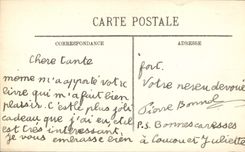 CARTE POSTALE
CORRESPONDANCE
ADRESSE
Chere Tante
meme m'a apporté votre
livre qui m'a fait bien
plaisir. C'est le plus joli
cadeau que j'ai eu, et il
est tres interessant.
je vous embrasse bien
fort.
Votre neveu devoué
Pierre Bonnel
P.S. Bonnes caresses
à Coucou et Juliette